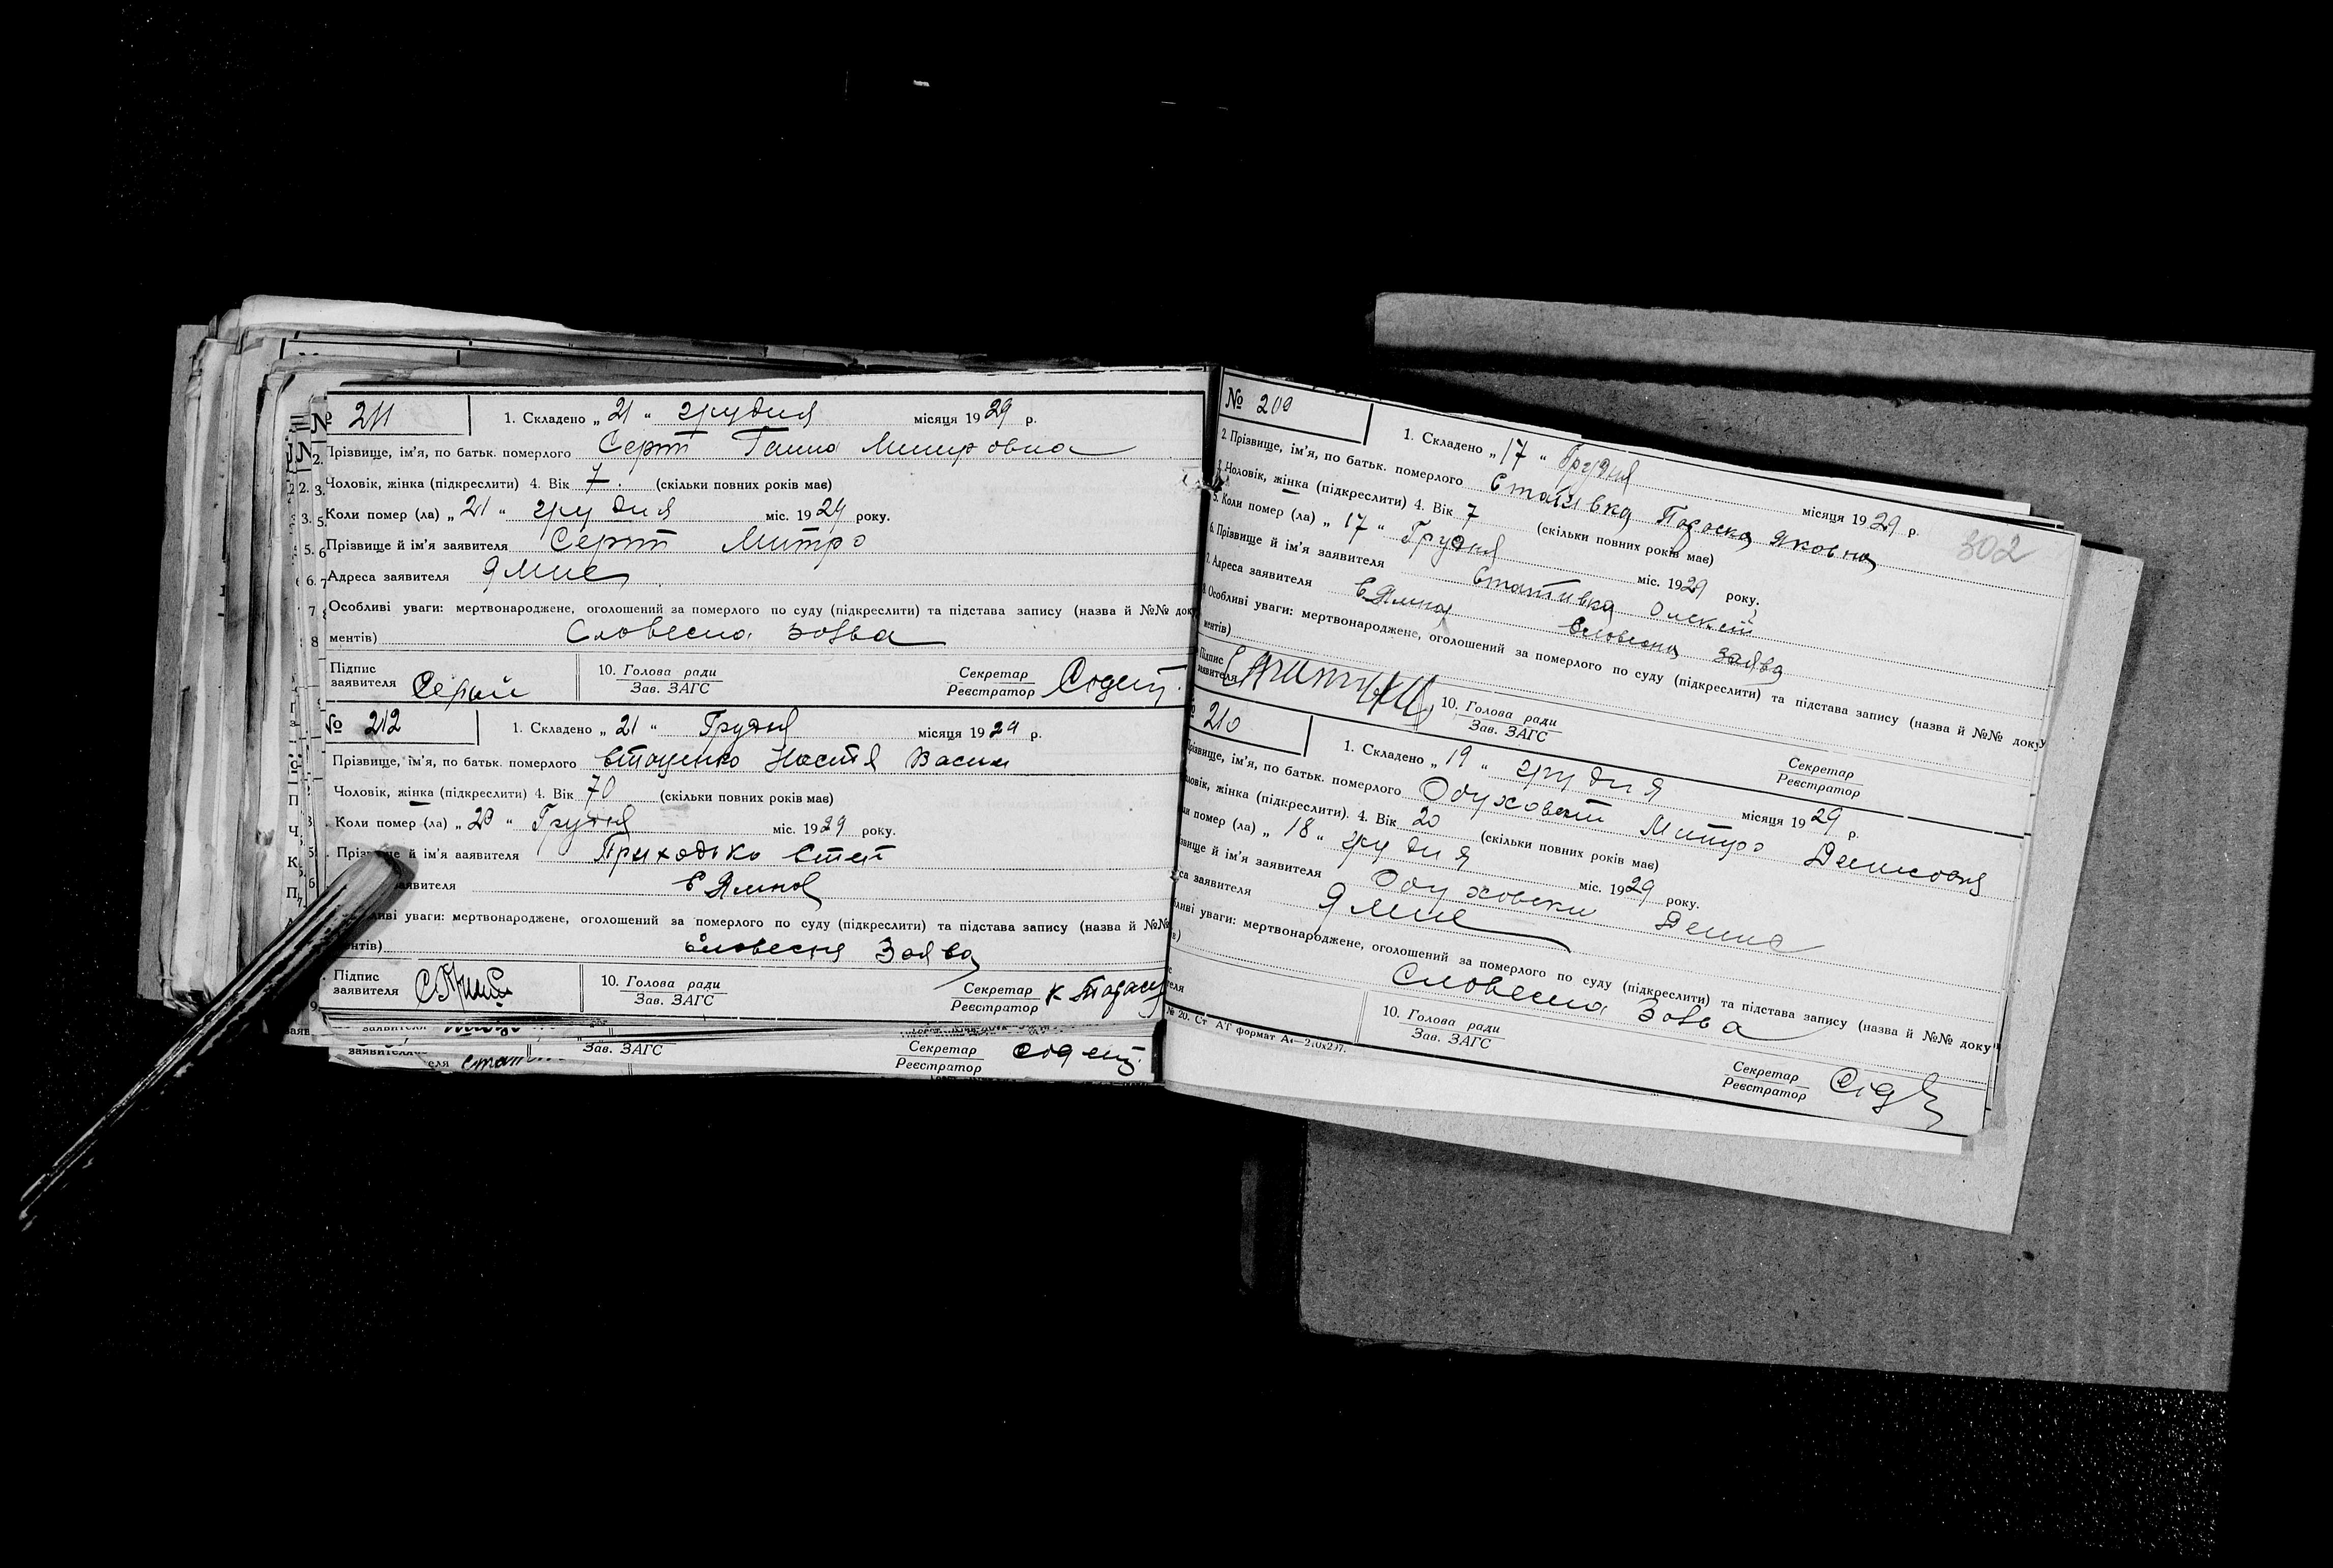 № 211 1. Складено „ 21 “ грудня місяця 1929 р.
Прізвище, ім'я, по батьк. померлого Серт Ганна
Чоловік, жінка (підкреслити) 4. Вік 7. (скільки повних років має)
Коли помер (ла) „ 21 “ грудня міс. 1929 року.
Прізвище й ім'я заявителя Серт Митро
Адреса заявителя
Особливі уваги: мертвонароджене, оголошений за померлого по суду (підкреслити) та підстава запису (назва й №№ доку
ментів) Словесна заява
Підпис заявителя 10. Голова ради Зав. ЗАГС Секретар Реєстратор
№ 212 1. Складено „ 21 “ Грудня місяця 1929 р.
Прізвище, ім'я, по батьк. померлого Стоценко Настя Васил
Чоловік, жінка (підкреслити) 4. Вік 70 (скільки повних років має)
Коли помер (ла) „ 20 “ Грудня міс. 1929 року.
й ім'я заявителя Приходько Степ
заявителя
уваги: мертвонароджене, оголошений за померлого по суду (підкреслити) та підстава запису (назва й №№
ментів) словесня Заява
Підпис заявителя 10. Голова ради Зав. ЗАГС Секретар Реєстратор
заявителя Зав. ЗАГС Секретар Реєстратор
302
№ 209 1. Складено „ 17 “ Грудня місяця 1929 р.
2. Прізвище, ім'я, по батьк. померлого Статівка Параска Яковна
3. Чоловік, жінка (підкреслити) 4. Вік 7 (скільки повних років має)
5. Коли помер (ла) „ 17 “ Грудня міс. 1929 року.
6. Прізвище й ім'я заявителя Стативка Олексій
7. Адреса заявителя
8. Особливі уваги: мертвонароджене, оголошений за померлого по суду (підкреслити) та підстава запису (назва й №№ доку
ментів) Словесна заява
Підпис заявителя 10. Голова ради Зав. ЗАГС Секретар Реєстратор
№ 210 1. Складено „ 19 “ грудня місяця 1929 р.
Прізвище, ім'я, по батьк. померлого Митро Денисовия
Чоловік, жінка (підкреслити). 4. Вік 20 (скільки повних років має)
помер (ла) „ 18 “ грудня міс. 1929 року.
й ім'я заявителя Денис
заявителя
уваги: мертвонароджене, оголошений за померлого по суду (підкреслити) та підстава запису (назва й №№ доку
Словесна Заява
10. Голова ради Зав. ЗАГС Секретар Реєстратор